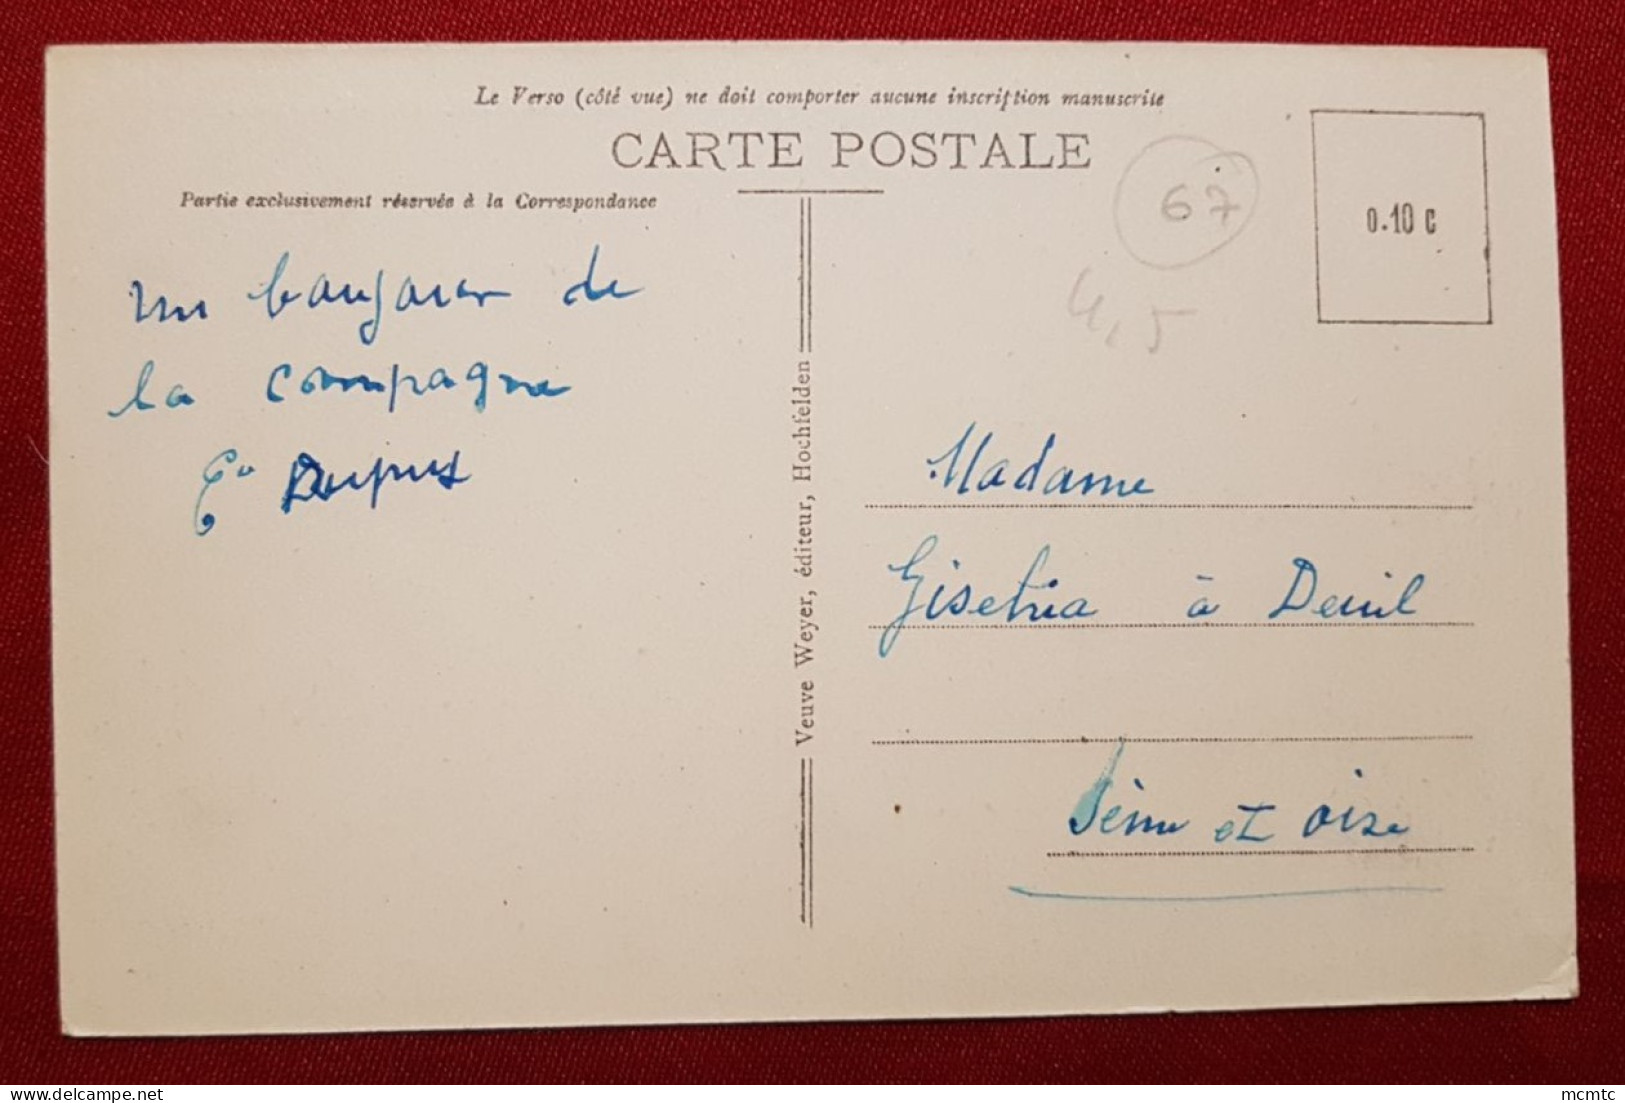 Le Verso (côté vue) ne doit comporter aucune inscription manuscrite
CARTE POSTALE
Partie exclusivement réservée à la Correspondance
67
0.10 C
4,5
un bonjour de
la compagne
Dupuy
Veuve Weyer, éditeur, Hochfelden
Madame
à Deuil
Seine et Oise
mcmtc